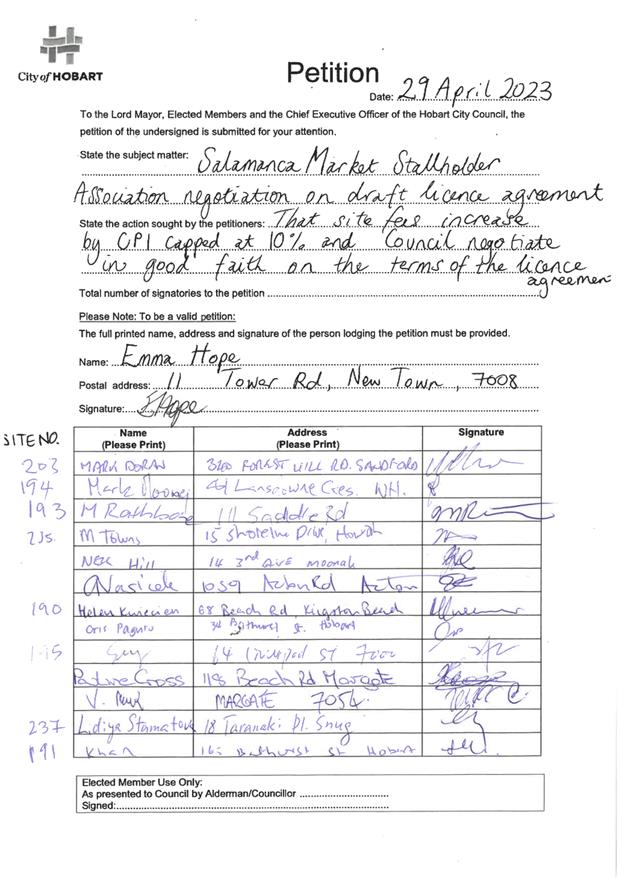 City of HOBART
Petition
Date: 29 April 2023
To the Lord Mayor, Elected Members and the Chief Executive Officer of the Hobart City Council, the
petition of the undersigned is submitted for your attention.
State the subject matter: Salamanca Market Stallholder
Association negotiation on draft licence agreement
State the action sought by the petitioners: That site fees increase
by CPI capped at 10% and Council negotiate
in good faith on the terms of the licence
agreemen
Total number of signatories to the petition
Please Note: To be a valid petition:
The full printed name, address and signature of the person lodging the petition must be provided.
Name: Emma Hope
Postal address: 11 Tower Rd, New Town, 7008
Signature: EHope
SITE NO. Name (Please Print) Address (Please Print) Signature
203 MARK DORAN FOREST HILL RD. SANDFORD
194 Mark Lansdowne Cres. WH.
193 M Rathbone 111 Saddle Rd
M Towns 15 Shoreline Drive,
Hill 14 3rd Ave Moonah
1059 Acton Rd Acton
190 Helen 68 Beach Rd, Kingston Beach
Oris St. Hobart
64 ST 7000
Cross Beach Rd Margate
V. MARGATE 7054
237 Lidiya 18 Taranaki Pl. Snug
191 Khan Bathurst St Hobart
Elected Member Use Only:
As presented to Council by Alderman/Councillor
Signed: